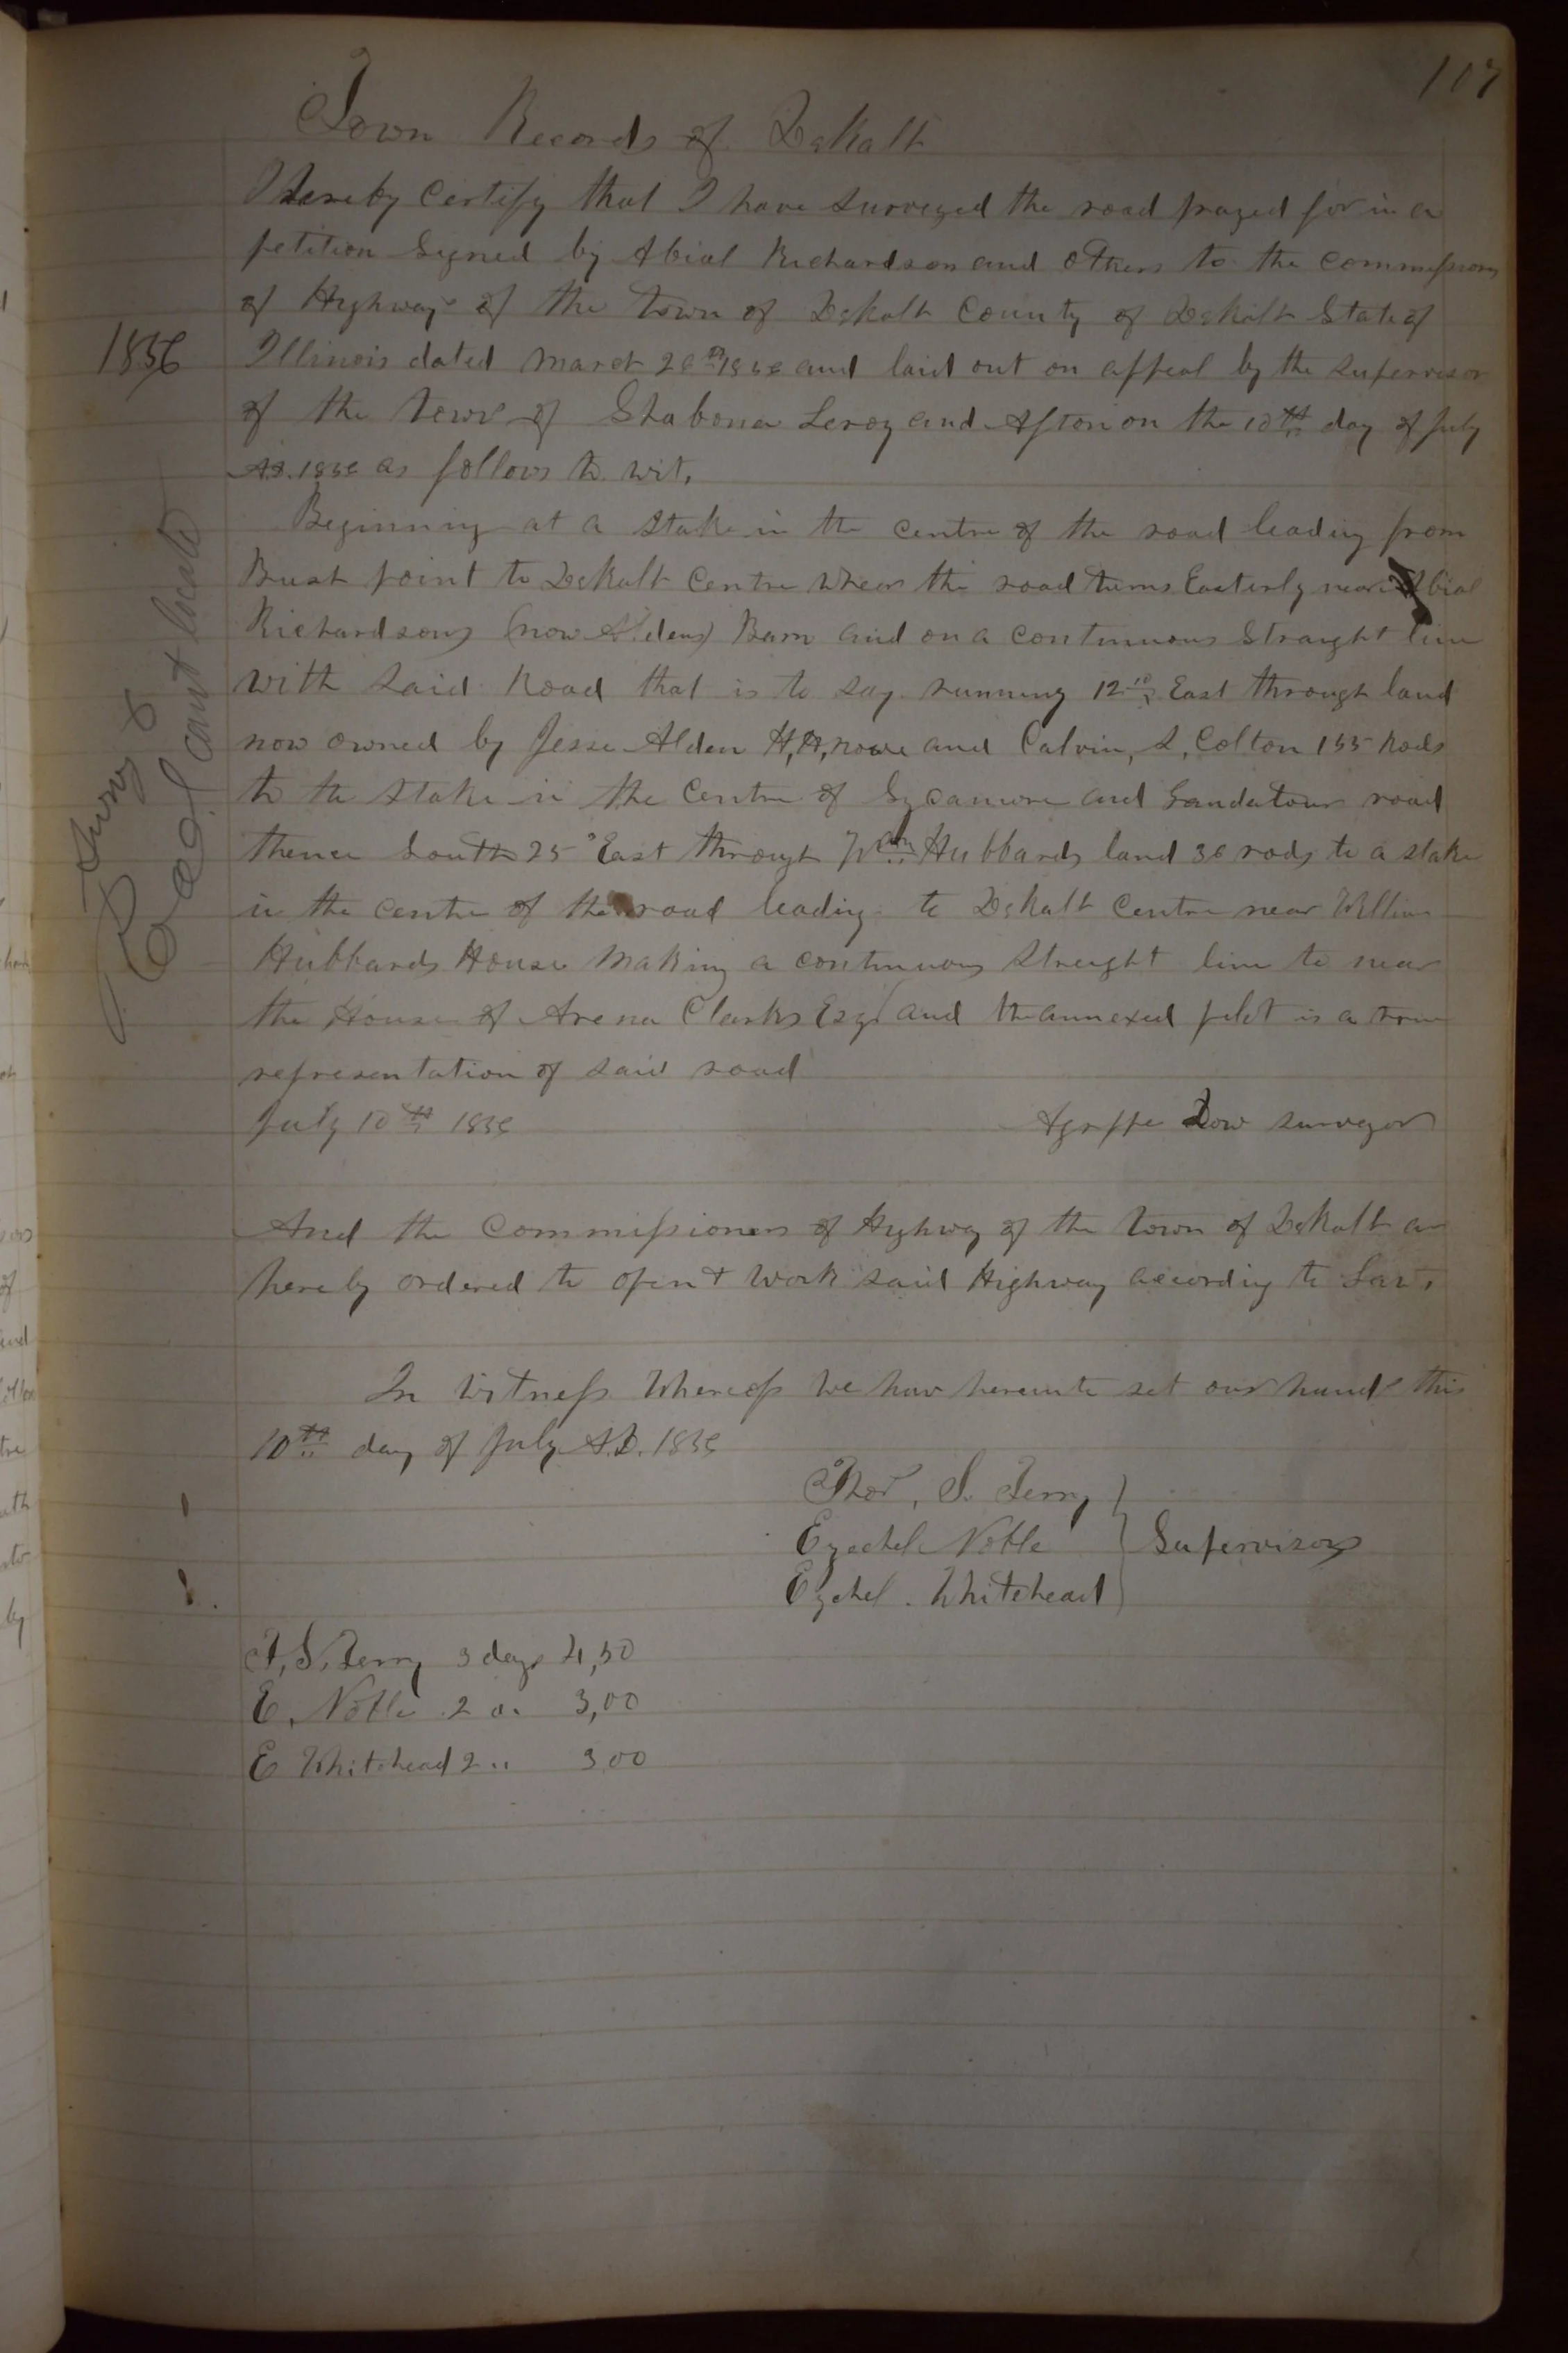 107
Town Records of DeKalb
I hereby Certify that I have surveyed the road prayed for in a
petition Signed by Abial Richardson and others to the commissioners
of Highways of the Town of DeKalb County of DeKalb State of
1856
Illinois dated March 1856 and laid out on appeal by the supervisor
of the Town of Shabona Leroy and Afton on the 10th day of July
A.D. 1856 as follows to wit,
Beginning at a Stake in the centre of the road leading from
point to DeKalb Centre where the road turns Easterly near Abial
Richardsons (now Aldens) Barn and on a continuous Straight line
with Said Road that is to say running 12 East through land
now owned by Jesse Alden H, and Calvin, S, Colton 155 Rods
to the stake in the Centre of Sycamore and road
thence South 25° East through Wm Hubbards land 36 rods to a stake
in the centre of the road leading to DeKalb Centre near William
Hubbards House Making a continuous Streight line to near
the House of Clarks Esq and the annexed plot is a true
representation of said road
July 10th 1856
Dow surveyor
Survey &
Road cant locate
And the Commissioners of Highway of the Town of DeKalb are
hereby ordered to open & Work said Highway according to Law.
In Witness Whereof We have hereunto set our hands this
10th day of July A.D. 1856
S. Terry
Noble
Supervisors
Whitehead
T, S, Terry 3 days 4,50
E. Noble 2 3,00
E Whitehead 2 " 3 00